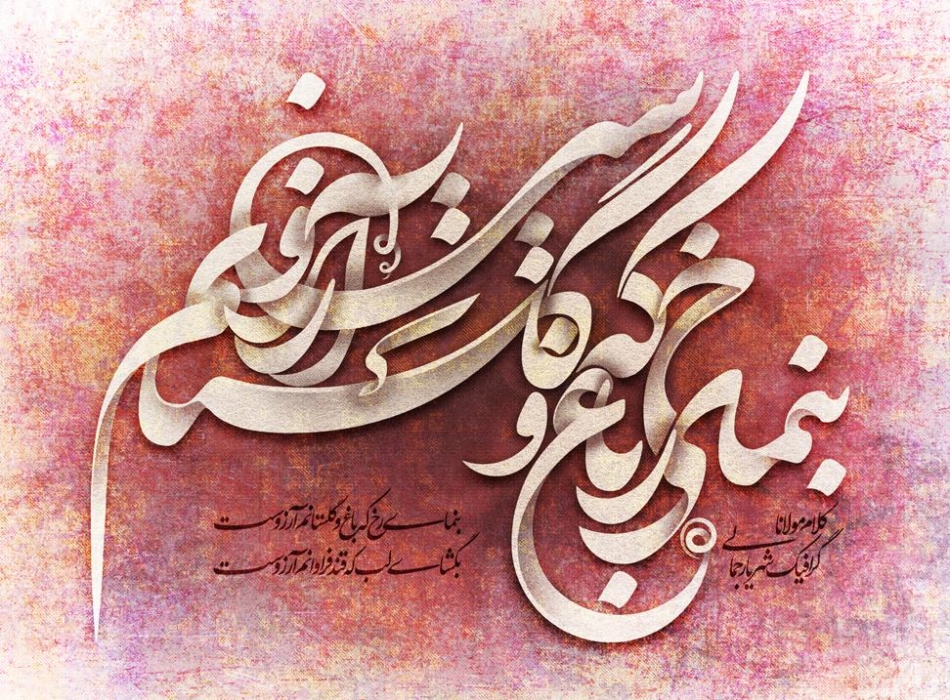 بنمای رخ که باغ و گلستانم آرزوست
بنمای رخ که باغ و گلستانم آرزوست
بگشای لب که قند فراوانم آرزوست
کلام مولانا
گرافیک شهریار جمالی